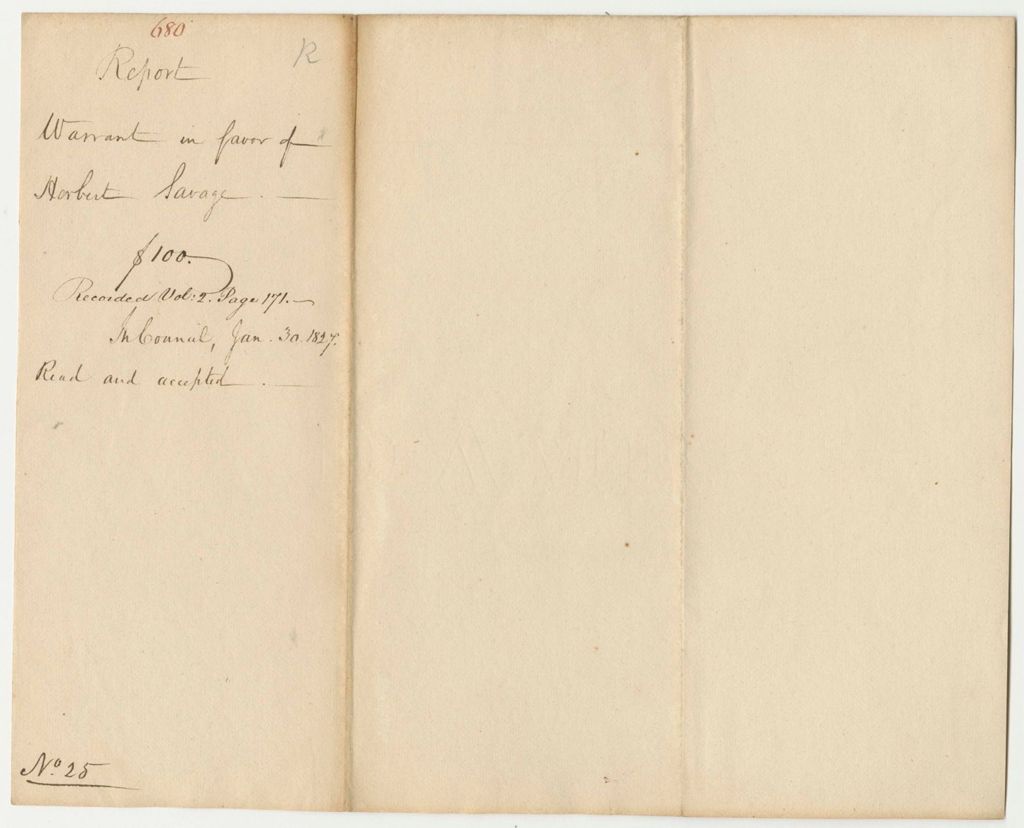 680
R
Report
Warrant in favor of
Herbert Savage
$100.
Recorded Vol: 2. Page 171.
In Council, Jan. 30. 1827.
Read and accepted
No 25